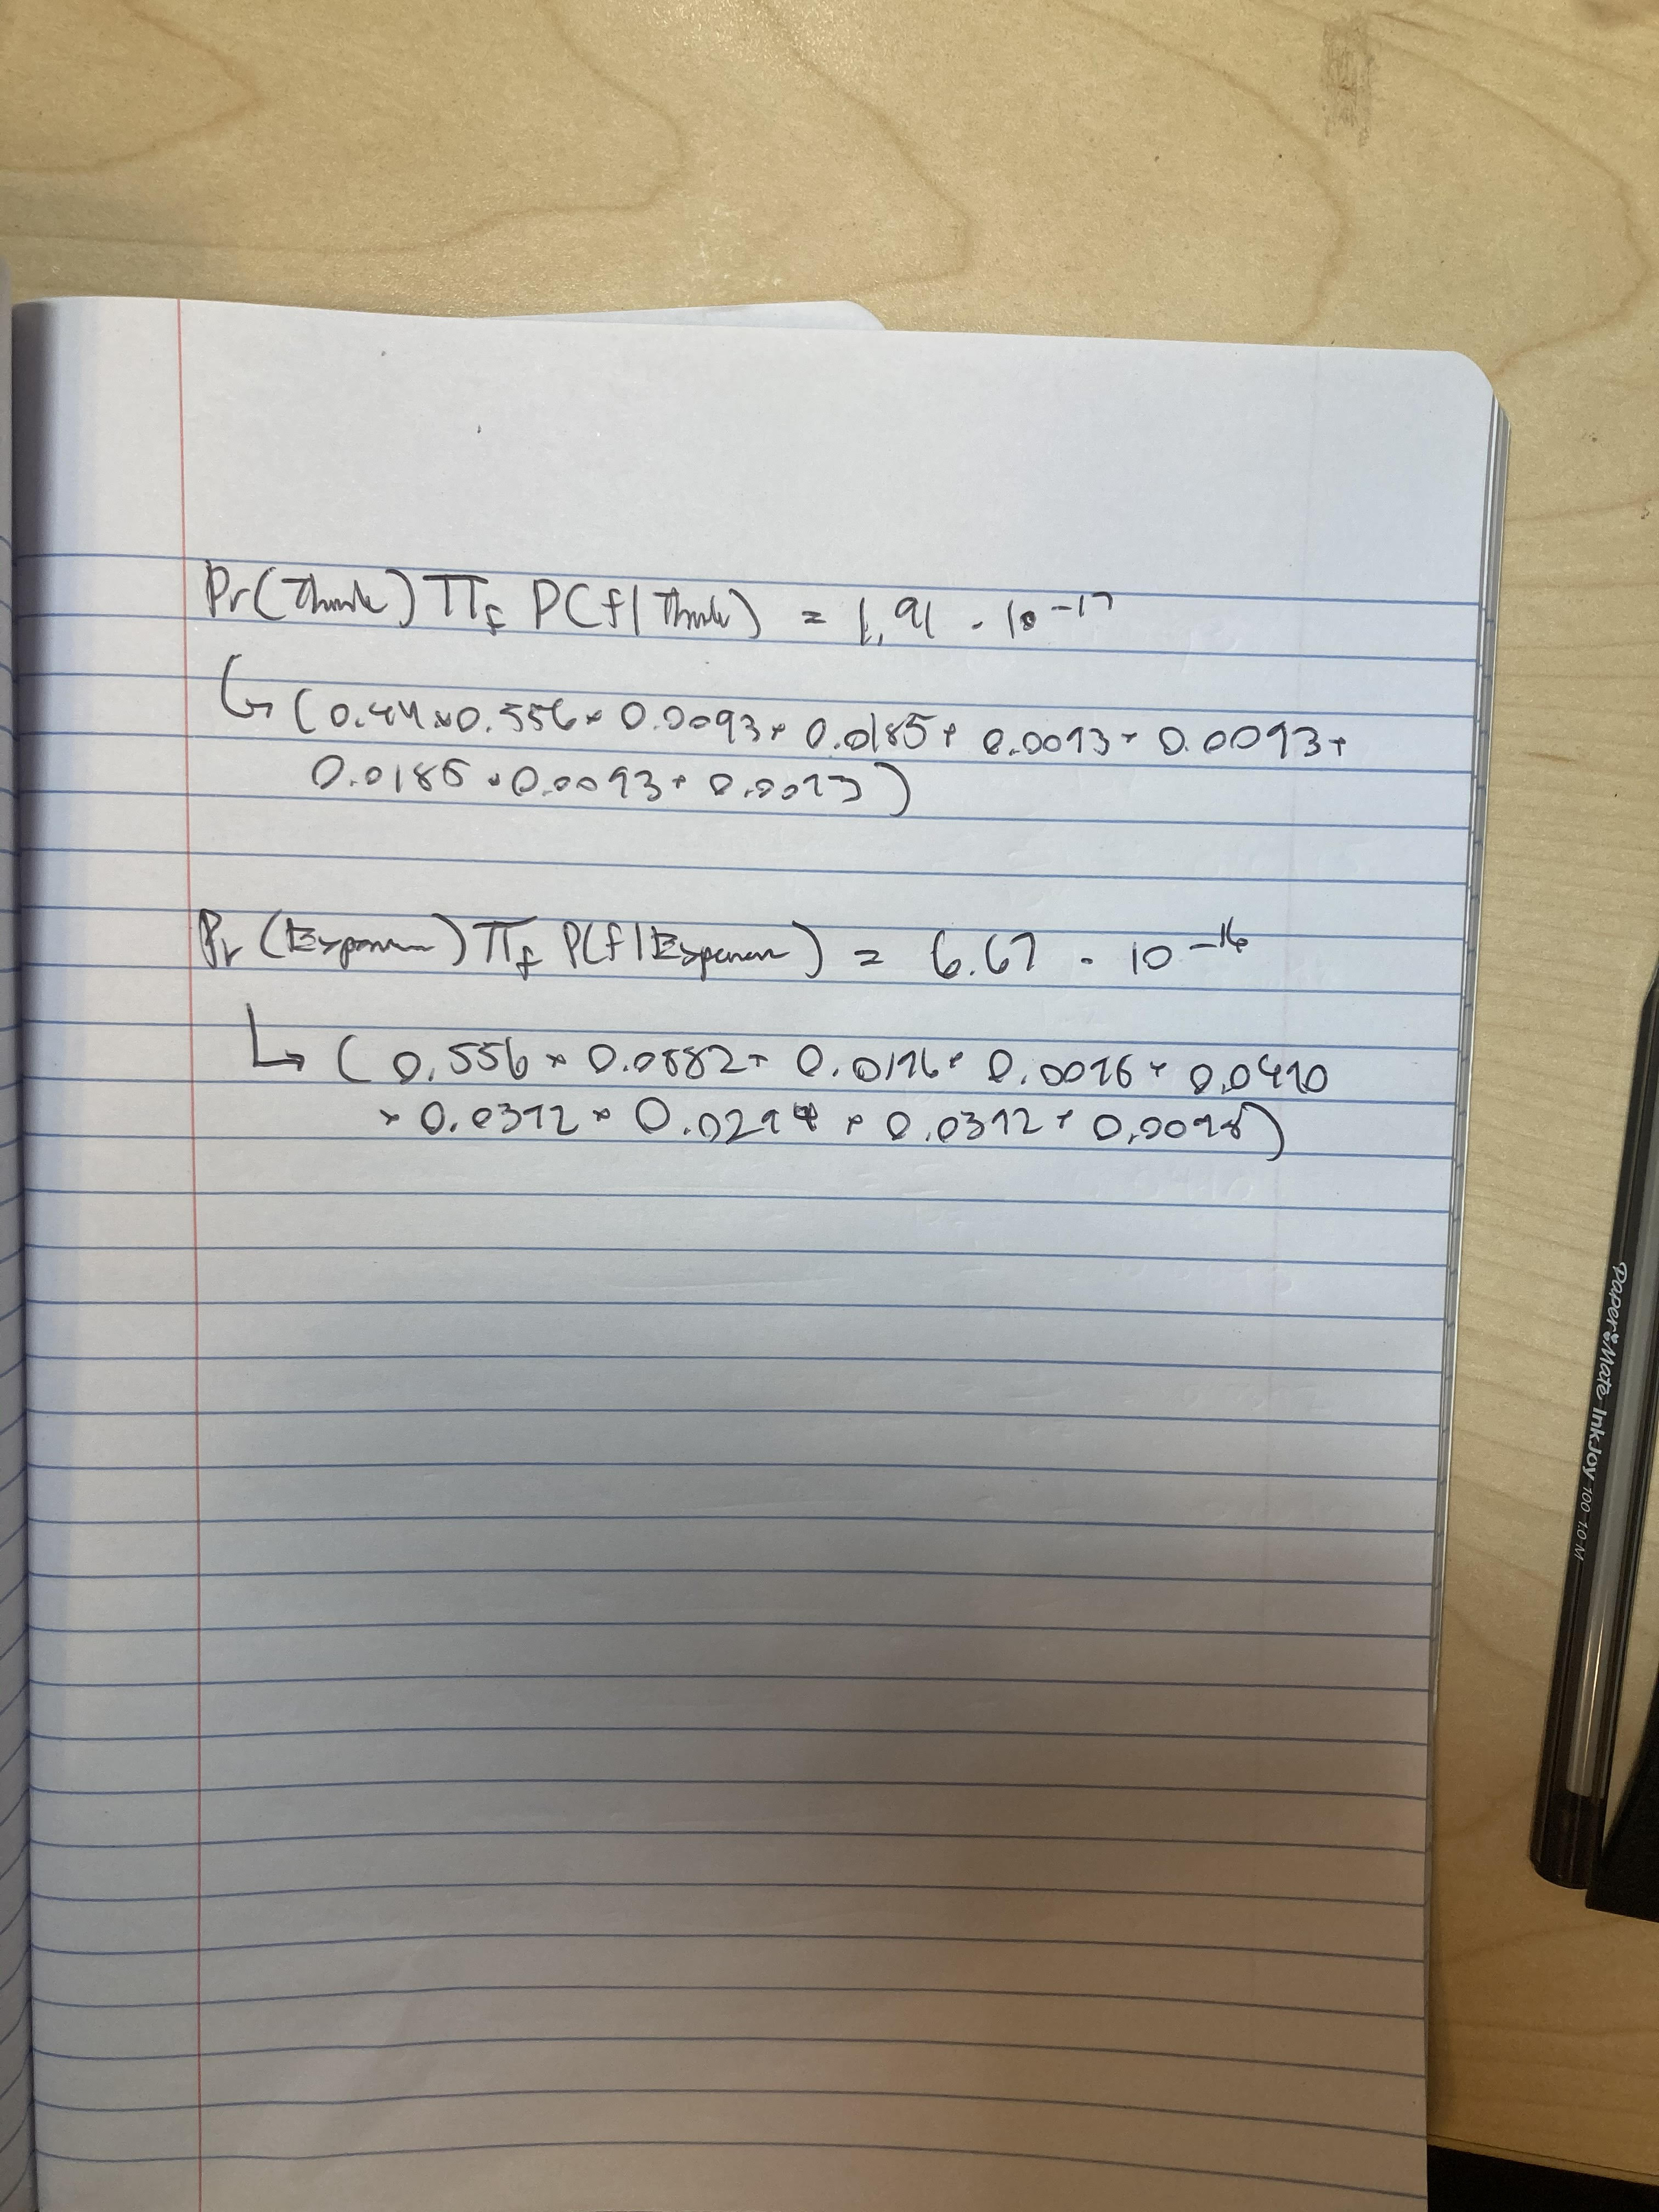 Pr(Think) Π_f P(f|Think) = 1.91 · 10^-17
↳ (0.44 × 0.556 × 0.0093 × 0.0185 × 0.0093 × 0.0093 ×
0.0185 × 0.0093 × 0.0093)
Pr (Experience) Π_f P(f|Experience) = 6.67 · 10^-16
↳ ( 0.556 × 0.0882 × 0.0196 × 0.0096 × 0.0490
× 0.0392 × 0.0294 × 0.0392 × 0.0098)
Paper Mate InkJoy 100 1.0 M